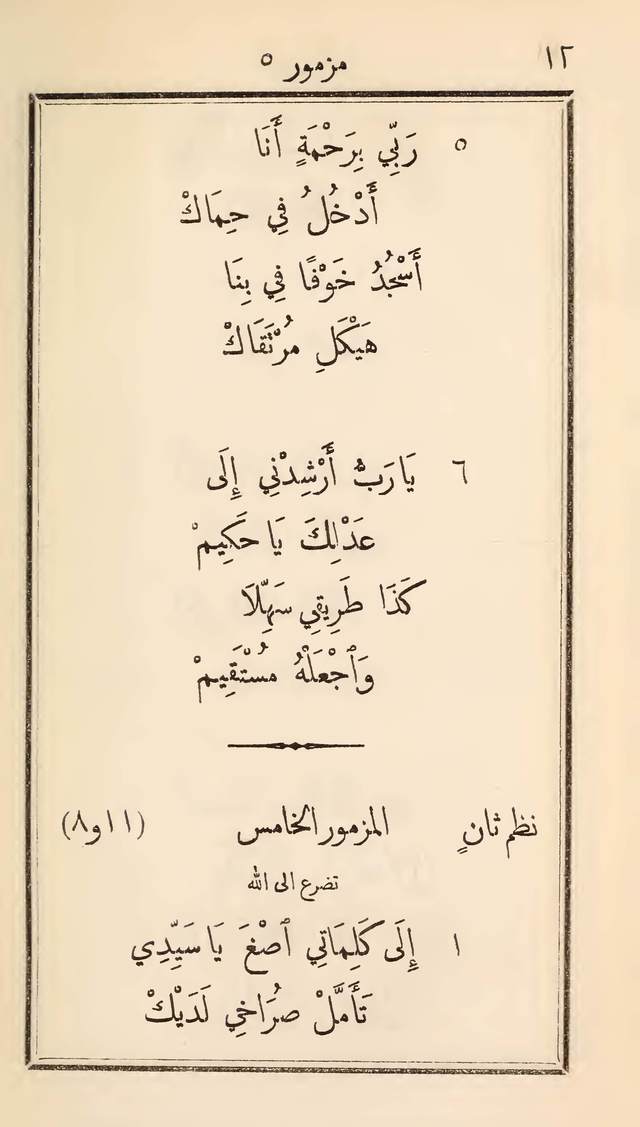 ١٢
مزمور ٥
٥ رَبِّي بِرَحْمَةٍ أَنَا
أَدْخُلُ فِي حِمَاكْ
أَسْجُدُ خَوْفًا فِي بِنَا
هَيْكَلِ مُرْتَقَاكْ
٦ يَا رَبُّ أَرْشِدْنِي إِلَى
عَدْلِكَ يَا حَكِيمْ
كَذَا طَرِيقِي سَهِّلَا
وَٱجْعَلْهُ مُسْتَقِيمْ
نظم ثانٍ المزمور الخامس (١١ و٨)
تضرع الى الله
١ إِلَى كَلِمَاتِي ٱصْغَ يَا سَيِّدِي
تَأَمَّلْ صُرَاخِي لَدَيْكْ